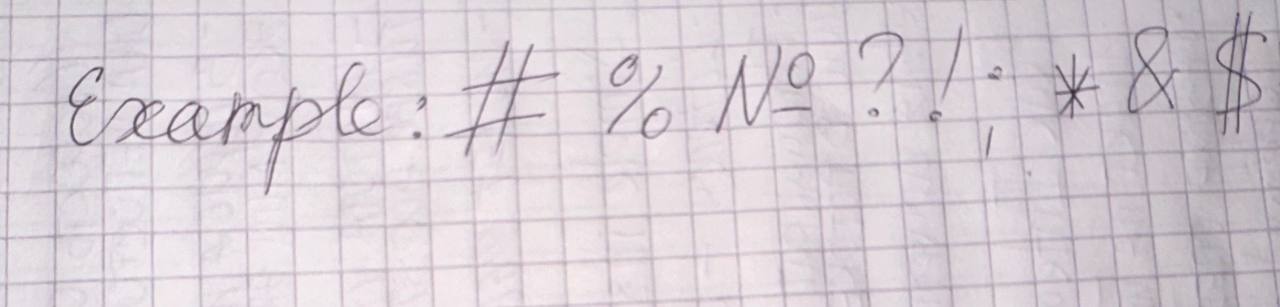 Example: # % № ? ! ; * & $